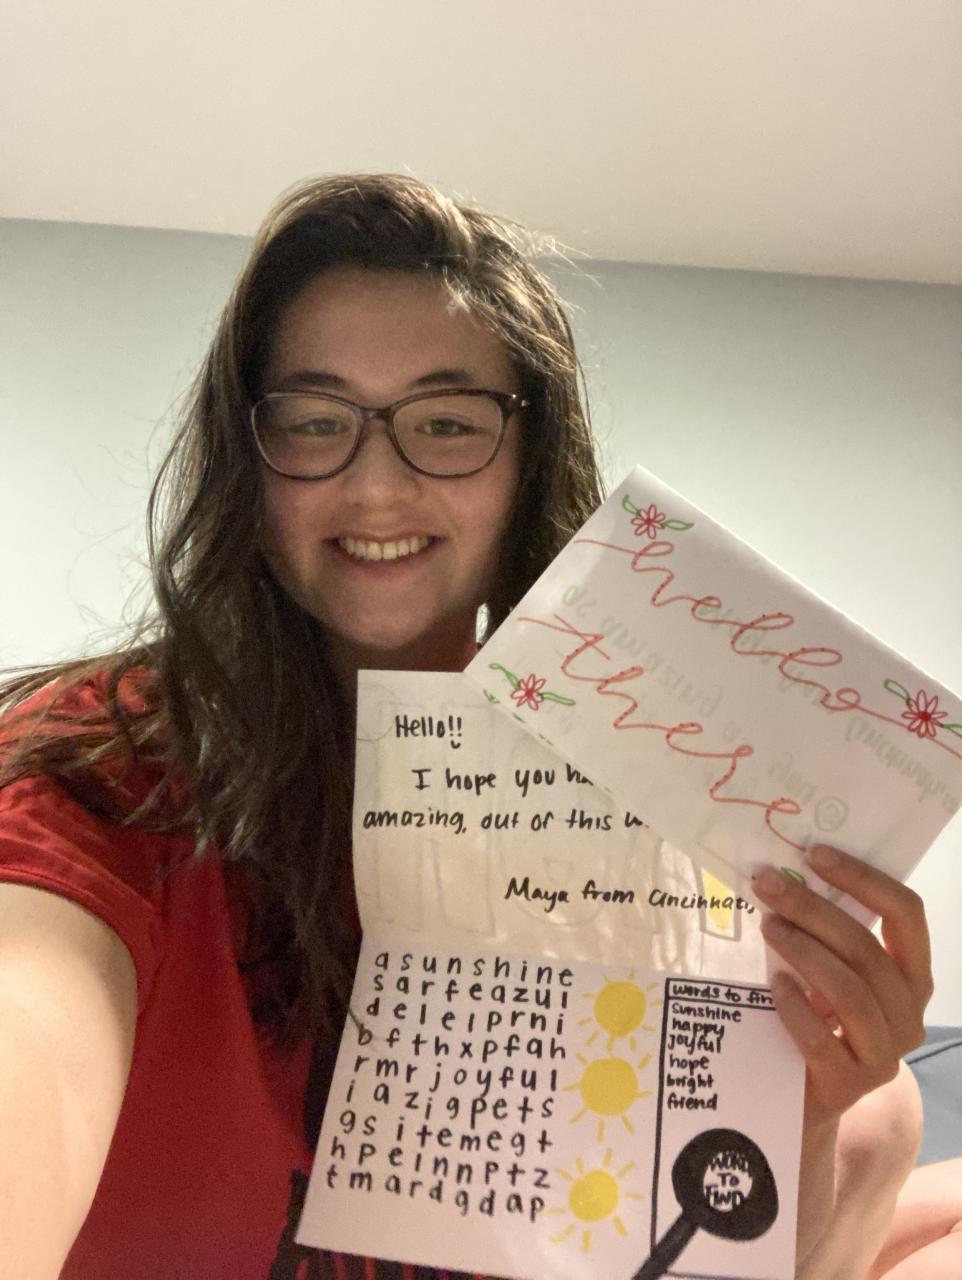 hello
there
Hello!!
I hope you
amazing, out of this
Maya from Cincinnati
asunshine
sarfeazul
deleiprni
bfthxpfah
rmrjoyful
iazigpets
gsitemegt
hpeinnptz
tmardgdap
words to
sunshine
happy
joyful
hope
bright
friend
WORDS
TO
FIND